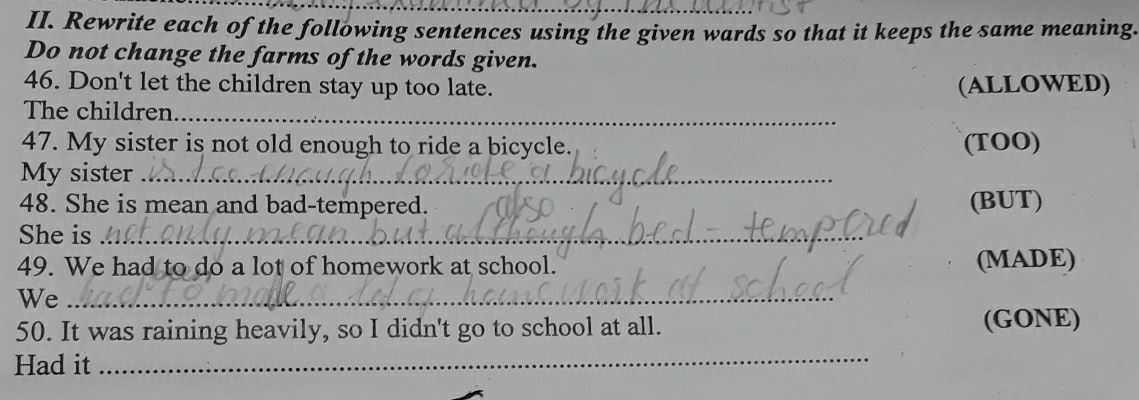 II. Rewrite each of the following sentences using the given wards so that it keeps the same meaning.
Do not change the farms of the words given.
46. Don't let the children stay up too late. (ALLOWED)
The children..............................
47. My sister is not old enough to ride a bicycle. (TOO)
My sister is too enough to ride a bicycle
48. She is mean and bad-tempered. (BUT)
also
She is not only mean but although bed-tempered
49. We had to do a lot of homework at school. (MADE)
We had to made a lot of homework at school
50. It was raining heavily, so I didn't go to school at all. (GONE)
Had it ..............................